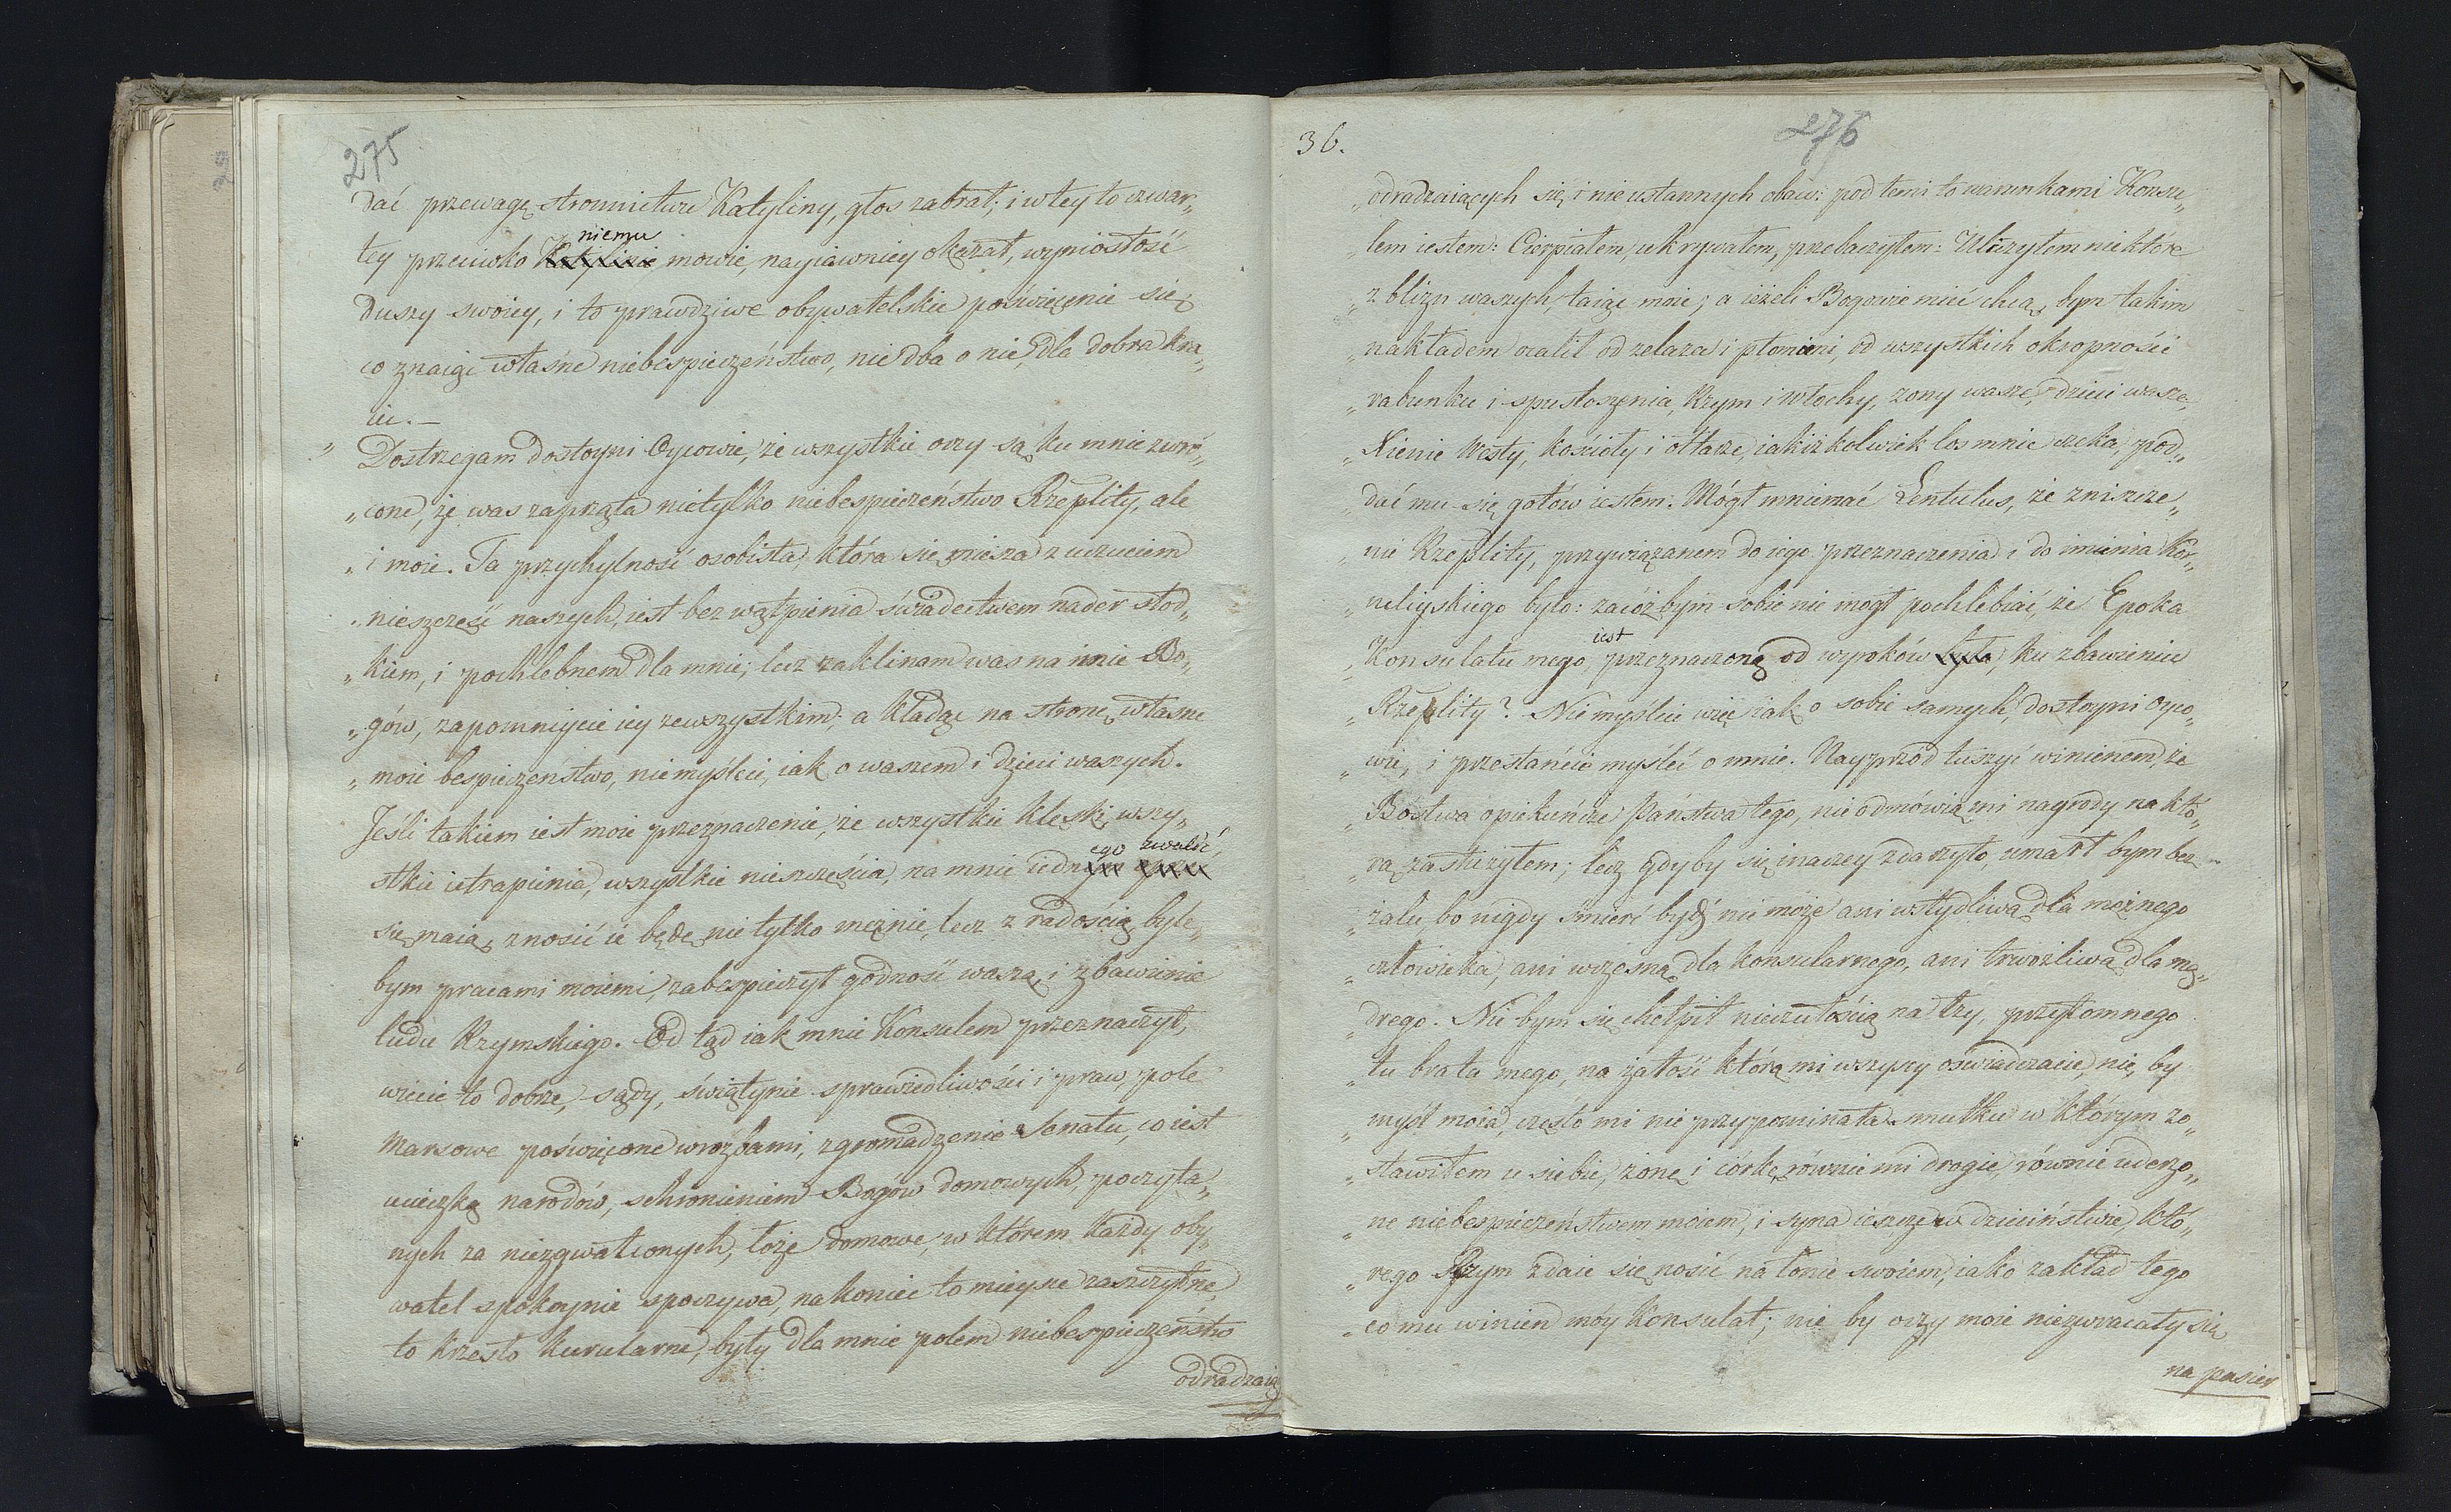 275
dać przewagę stronnictwu Katyliny, głos zabrał; i w tey to czwar„
niemu
tey przeciwko Katylinie mowie, nayiawniey okazał, wyniosłość
duszy swoiey, i to prawdziwe obywatelskie poświęcenie się,
co znaiąc własne niebespieczeństwo, nie dba o nie, dla dobra kra„
iu. —
„ Dostrzegam dostoyni Oycowie, że wszystkie oczy są ku mnie zwró„
„cone, że was zaprząta nietylko niebespieczeństwo Rzeplity, ale
„ i moie. Ta przychylność osobista, która się miesza z uczuciem
„ nieszczęść naszych, iest bez wątpienia świadectwem nader słod„
„kiem, i pochlebnem dla mnie; lecz zaklinam was na imie Bo„
„gów, zapomniycie iey zewszystkim; a kładąc na stronę własne
„ moie bespieczeństwo, niemyślcie, iak o waszem i dzieci waszych.
Jeśli takiem iest moie przeznaczenie, że wszystkie klęski, wszy„
ego zwalić
stkie utrapienia, wszystkie nieszczęścia, na mnie iednym
się maią, znosić ie będę nie tylko mężnie, lecz z radością, byle„
bym pracami moiemi, zabespieczył godność waszą i zbawienie
ludu Rzymskiego. Od tąd iak mnie Konsulem przeznaczył,
wiecie to dobrze, sądy, świątynie sprawiedliwości i praw, pole
Marsowe poświęcone wrożbami, zgromadzenie Senatu, co iest
ucieczką narodów, schronieniem Bogów domowych, poczyta„
nych za niezgwałconych, łoże domowe, w którem każdy oby„
watel spokoynie spoczywa, nakoniec to mieysce zaszczytne,
to krzesło kurularne, były dla mnie polem niebespieczeństw
odradzaią
36.
276
„odradzaiących się i nie ustannych obaw: pod temi to warunkami Konsu„
„lem iestem: Cierpiałem, ukrywałem, przebaczyłem: Uleczyłem niektóre
„z blizn waszych, taiąc moie; a ieżeli Bogowie mieć chcą, bym takim
„nakładem ocalił od żelaza i płomieni, od wszystkich okropności
„rabunku i spustoszenia, Rzym i Włochy, żony wasze, dzieci wasze,
„Xienie Westy, kościoły i ołtarze, iakiżkolwiek los mnie czeka, pod„
„dać mu się gotów iestem. Mógł mniemać Lentulus, że zniszcze„
„nie Rzeplity, przywiązanem do iego przeznaczenia i do imienia Kor„
„neliyskiego było: zacóż bym sobie nie mógł pochlebiać, że Epoka
iest
„Konsulatu mego, przeznaczoną od wyroków była, ku zbawieniu
„Rzeplity? Nie myślcie więc iak o sobie samych, dostoyni Oyco„
„wie, i przestańcie myśleć o mnie. Nayprzód tuszyć winienem, że
„Bóstwa opiekuńcze Państwa tego, nie odmówią mi nagrody na któ„
„rą zasłużyłem; lecz gdyby się inaczey zdarzyło, umarł bym bez
„żalu, bo nigdy śmierć bydź nie może ani wstydliwą dla mężnego
„człowieka, ani wczesną dla konsularnego, ani trwożliwą dla mą„
„drego. Nie bym się chełpił nieczułością na łzy, przytomnego
„tu brata mego, na żałość którą mi wszyscy oświadczacie, nie, by
„myśl moia, często mi nie przypominała smutku w którym zo„
„stawiłem u siebie, żonę i córkę równie mi drogie, równie uderzo„
„ne niebespieczeństwem moiem, i syna ieszcze w dzieciństwie, któ„
„rego Rzym zdaie się nosić na łonie swoiem, iako zakład tego
„co mu winien móy Konsulat; nie by oczy moie niezwracały się
na pasier